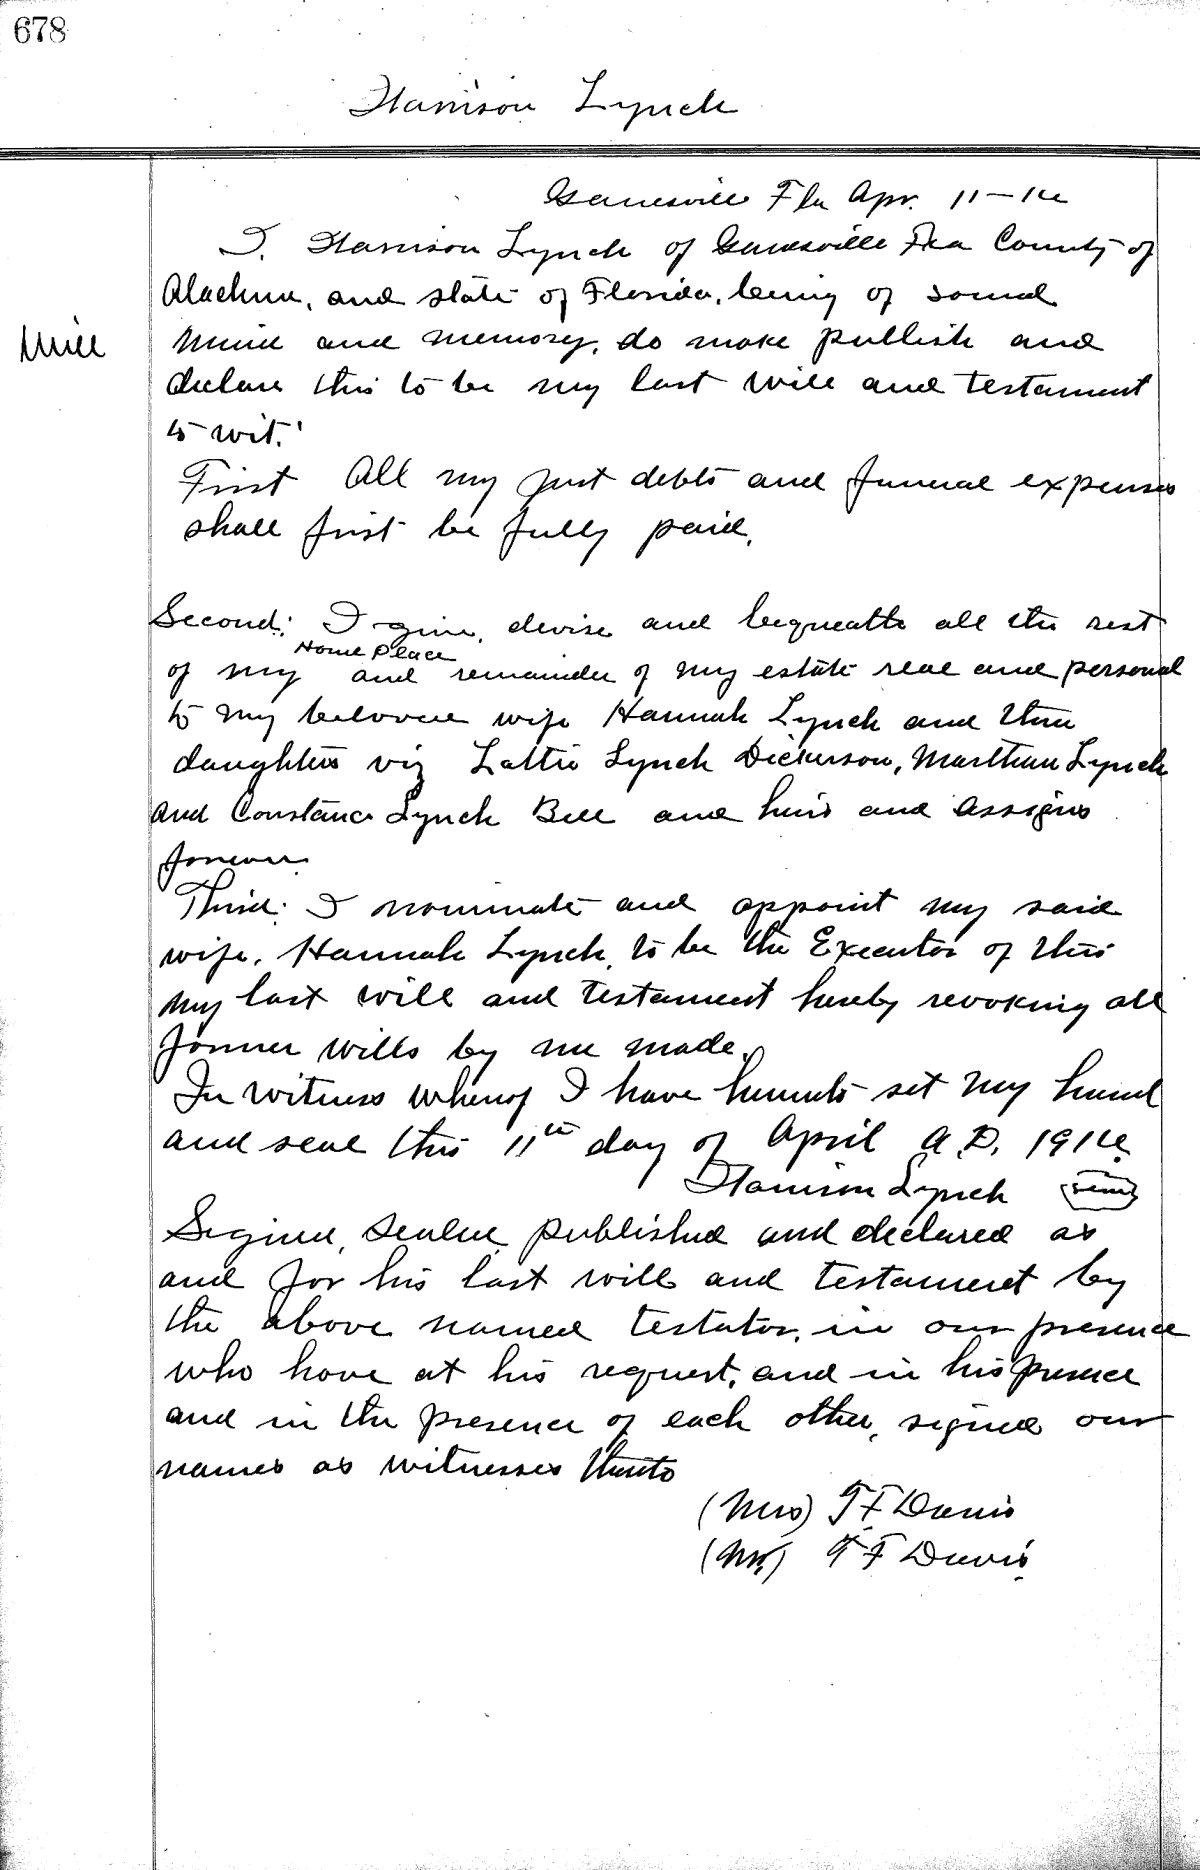 678
Harrison Lynch
Gainesville Fla Apr. 11-14
I, Harrison Lynch of Gainesville Fla County of
Alachua, and state of Florida, being of sound
Will
mind and memory, do make publish and
declare this to be my last will and testament
to wit:
First All my just debts and funeral expenses
shall first be fully paid.
Second: I give, devise and bequeath all the rest
Home Place
of my and remainder of my estate real and personal
to my beloved wife Hannah Lynch and three
daughters viz Lattie Lynch Dickerson, Lynch
and Constance Lynch Bell and heirs and assigns
forever.
Third: I nominate and appoint my said
wife, Hannah Lynch, to be the Executor of this
my last will and testament hereby revoking all
former wills by me made.
In witness whereof I have hereunto set my hand
and seal this 11th day of April A.D. 1914.
Harrison Lynch (seal)
Signed, sealed, published and declared as
and for his last will and testament by
the above named testator, in our presence
who have at his request, and in his presence
and in the presence of each other, signed our
names as witnesses thereto
(Mrs) T F Davis
(Mr.) T F Davis